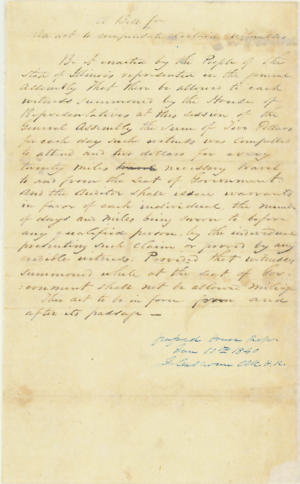 A Bill for
An act to compensate certain witnesses
Be it enacted by the People of the
State of Illinois represented in the general
Assembly That there be allowed to each
witness summoned by the House of
Representatives at this session of the
General Assembly the Sum of Two Dollars
for each day such witness was compelled
to attend and two dollars for every
twenty miles necessary travel
to and from the Seat of Government
And the Auditor shall issue warrants
in favor of each individual the number
of days and miles being sworn to before
any qualified person by the individual
presenting such claim or proved by any
credible witness. Provided that witnesses
summoned while at the seat of Gov-
ernment shall not be allowed mileage
This act to be in force from and
after its passage —
passed House Repr
Jan 10th 1840
J. Calhoun Clk H.R.